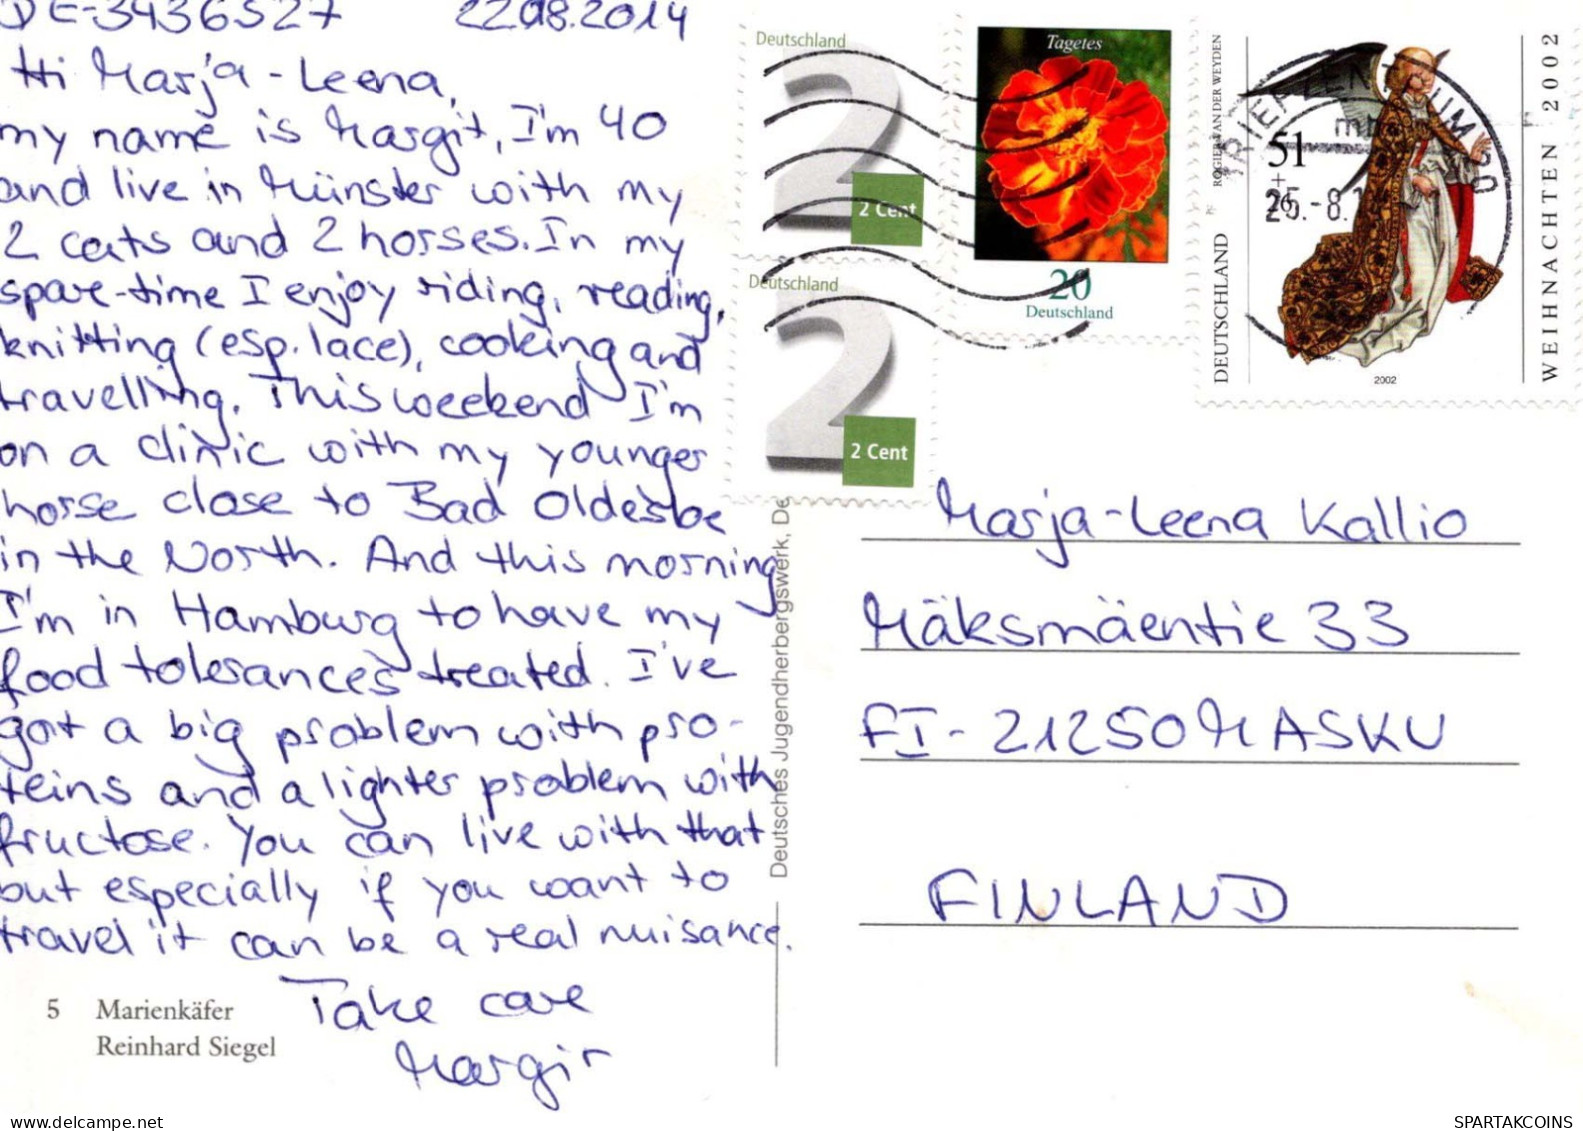 DE-3436527 22.08.2014
Hi Marja-Leena,
my name is Margit, I'm 40
and live in Münster with my
2 cats and 2 horses. In my
spare-time I enjoy riding, reading,
knitting (esp. lace), cooking and
travelling. This weekend I'm
on a clinic with my younger
horse close to Bad Oldesloe
in the North. And this morning
I'm in Hamburg to have my
food tolerances treated. I've
got a big problem with pro-
teins and a lighter problem with
fructose. You can live with that
but especially if you want to
travel it can be a real nuisance.
Take care
Margit
5 Marienkäfer
Reinhard Siegel
Deutsches Jugendherbergswerk, De
Deutschland
2
2 Cent
Deutschland
2
2 Cent
Tagetes
20
Deutschland
ROGIER VAN DER WEYDEN
DEUTSCHLAND
51
+
26
2002
WEIHNACHTEN 2002
BRIEFZENTRUM
Marja-Leena Kallio
Mäksmäentie 33
FI-21250 MASKU
FINLAND
www.delcampe.net
SPARTAKCOINS